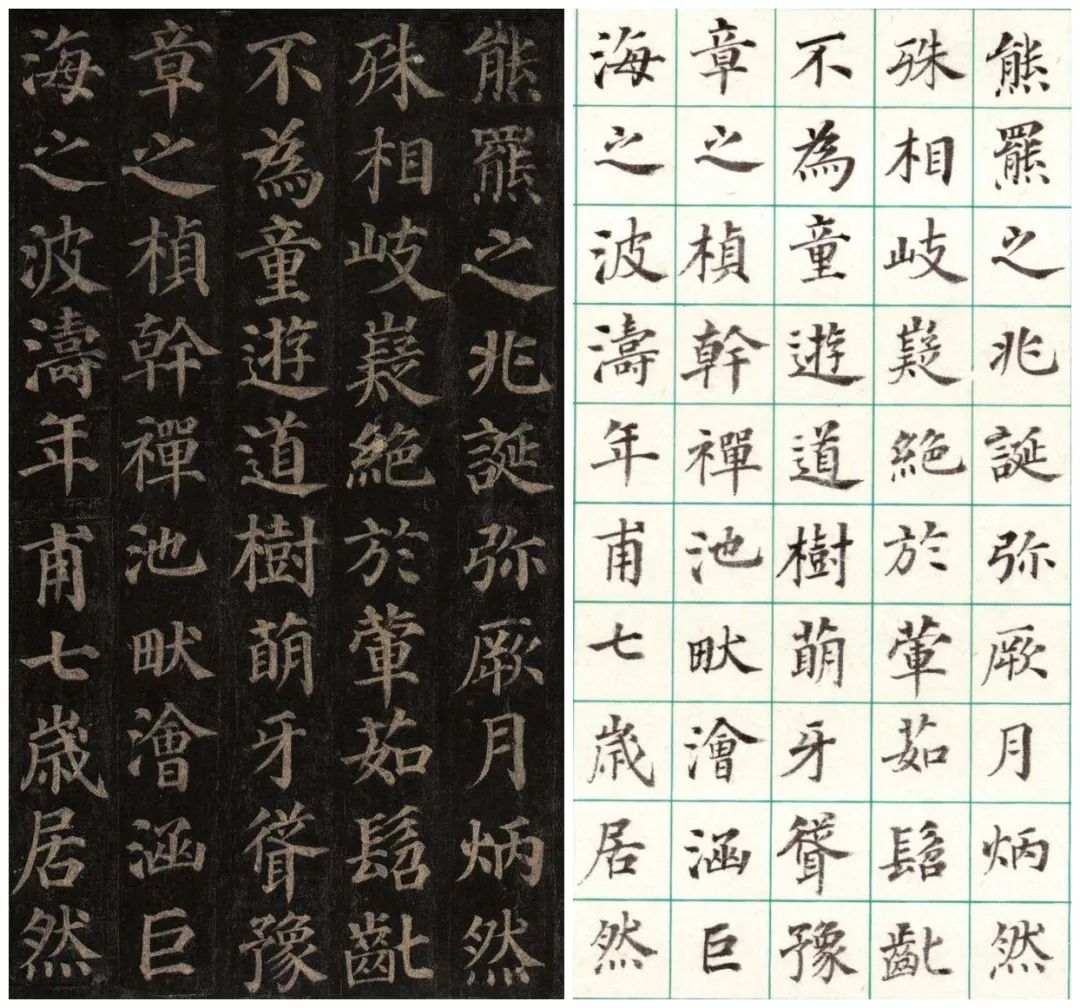 熊羆之兆誕弥厥月炳然
殊相岐嶷絕於葷茹髫齔
不為童遊道樹萌牙聳豫
章之楨幹禪池畎澮涵巨
海之波濤年甫七歲居然
熊羆之兆誕弥厥月炳然
殊相岐嶷絕於葷茹髫齔
不為童遊道樹萌牙聳豫
章之楨幹禪池畎澮涵巨
海之波濤年甫七歲居然